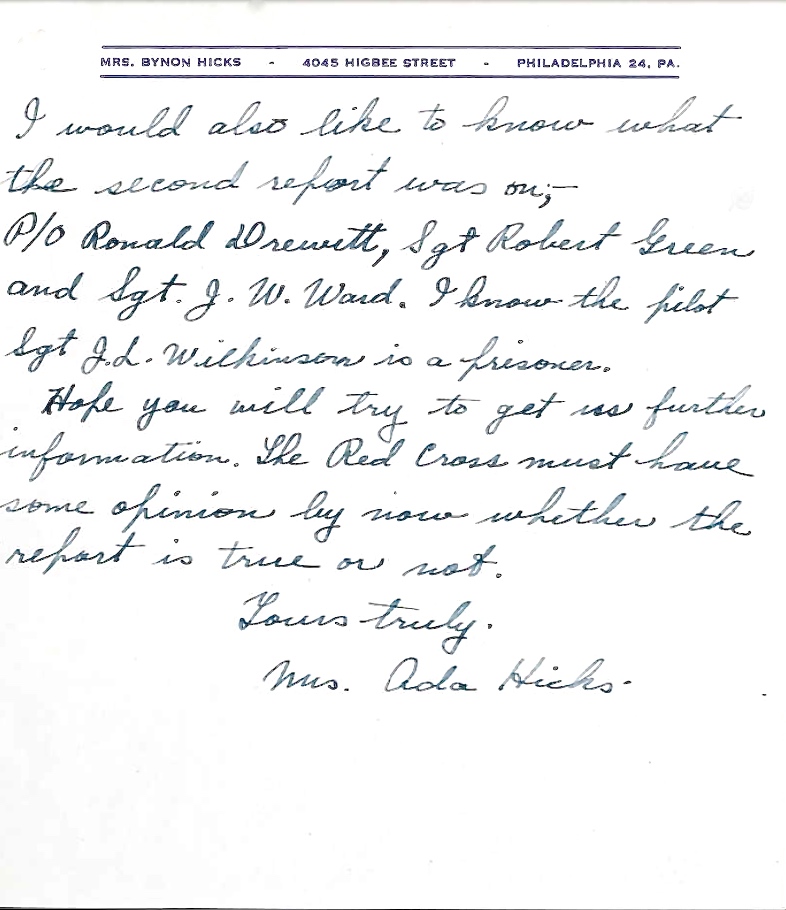 MRS. BYNON HICKS - 4045 HIGBEE STREET - PHILADELPHIA 24, PA.
I would also like to know what
the second report was on;-
P/O Ronald Drewitt, Sgt Robert Green
and Sgt. J. W. Ward. I know the pilot
Sgt J.L. Wilkinson is a prisoner.
Hope you will try to get us further
information. The Red Cross must have
some opinion by now whether the
report is true or not.
Yours truly.
Mrs. Ada Hicks.